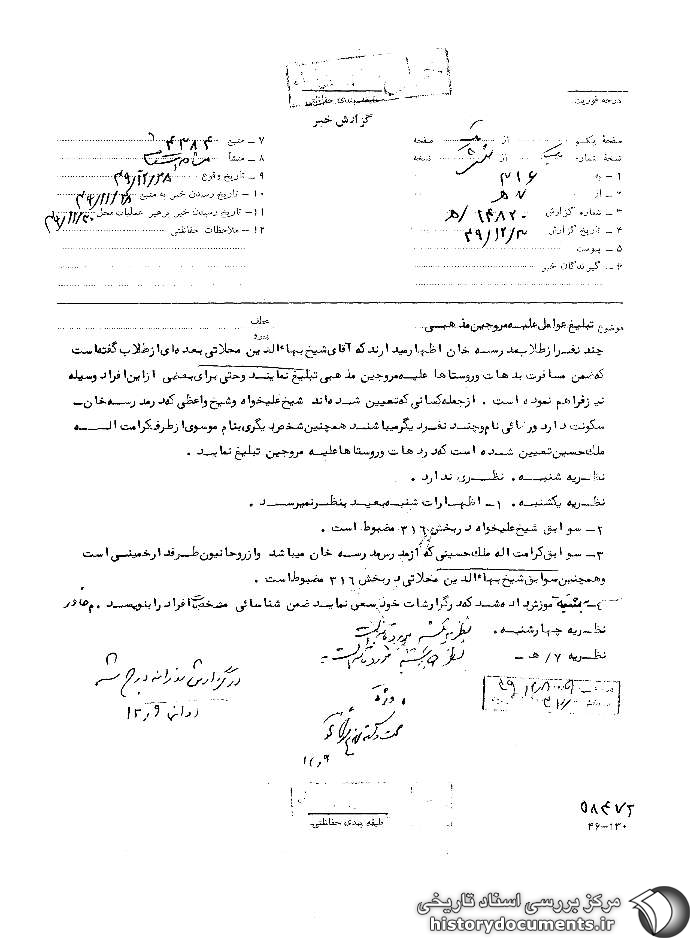 طبقه بندی حفاظتی
درجه فوریت
گزارش خبر
صفحهٔ یک از صفحه
نسخهٔ شماره از نسخه
۱ – به ۳۱۶
۲ – از ۷ ه
۳ – شماره گزارش ۱۴۸۲۰/ه
۴ – تاریخ گزارش
۵ – پیوست
۶ – گیرندگان خبر
۷ – منبع ۴۳۸۴
۸ – منشأ
۹ – تاریخ وقوع ۴۹/۱۲/۲۸
۱۰ – تاریخ رسیدن خبر به منبع
۱۱ – تاریخ رسیدن خبر برهبر عملیات محل
۱۲ – ملاحظات حفاظتی
موضوع تبلیغ عوامل علیه مروجین مذهبی
عطف
پیرو
چند نفر از طلاب مدرسه خان اظهار میدارند که آقای شیخ بهاءالدین محلاتی بعده‌ای از طلاب گفته است
که ضمن مسافرت بدهات و روستاها علیه مروجین مذهبی تبلیغ نمایند وحتی برای بعضی از این افراد وسیله
نیز فراهم نموده است . از جمله کسانی که تعیین شده‌اند شیخ علیخواه و شیخ واعظی که در مدرسه خان –
سکونت دارد و رنائی نام و چند نفر دیگر میباشند همچنین شخص دیگری بنام موسوی از طرف کرامت الله
ملک حسین تعیین شده است که در دهات و روستاها علیه مروجین تبلیغ نماید .
نظریه شنبه . نظری ندارد .
نظریه یکشنبه . ۱– اظهارات شنبه بعید بنظر نمیرسد .
۲– سوابق شیخ علیخواه در بخش ۳۱۶ مضبوط است .
۳– سوابق کرامت اله ملک حسینی که از مدرسه خان میباشد و از روحانیون طرفدار خمینی است
و همچنین سوابق شیخ بهاءالدین محلاتی در بخش ۳۱۶ مضبوط است .
۴– بشنبه آموزش داده شد که در گزارشات خود سعی نماید ضمن شناسائی مشخصات افراد را بنویسد .
نظریه چهارشنبه . نظریه یکشنبه مورد تائید است
نظریه ۷/ه – نظریه چهارشنبه مورد تائید است
در گزارش روزانه درج شد
ویژه
۵۸۴۷۲
۴۶–۱۳۰
طبقه بندی حفاظتی
مرکز بررسی اسناد تاریخی
historydocuments.ir